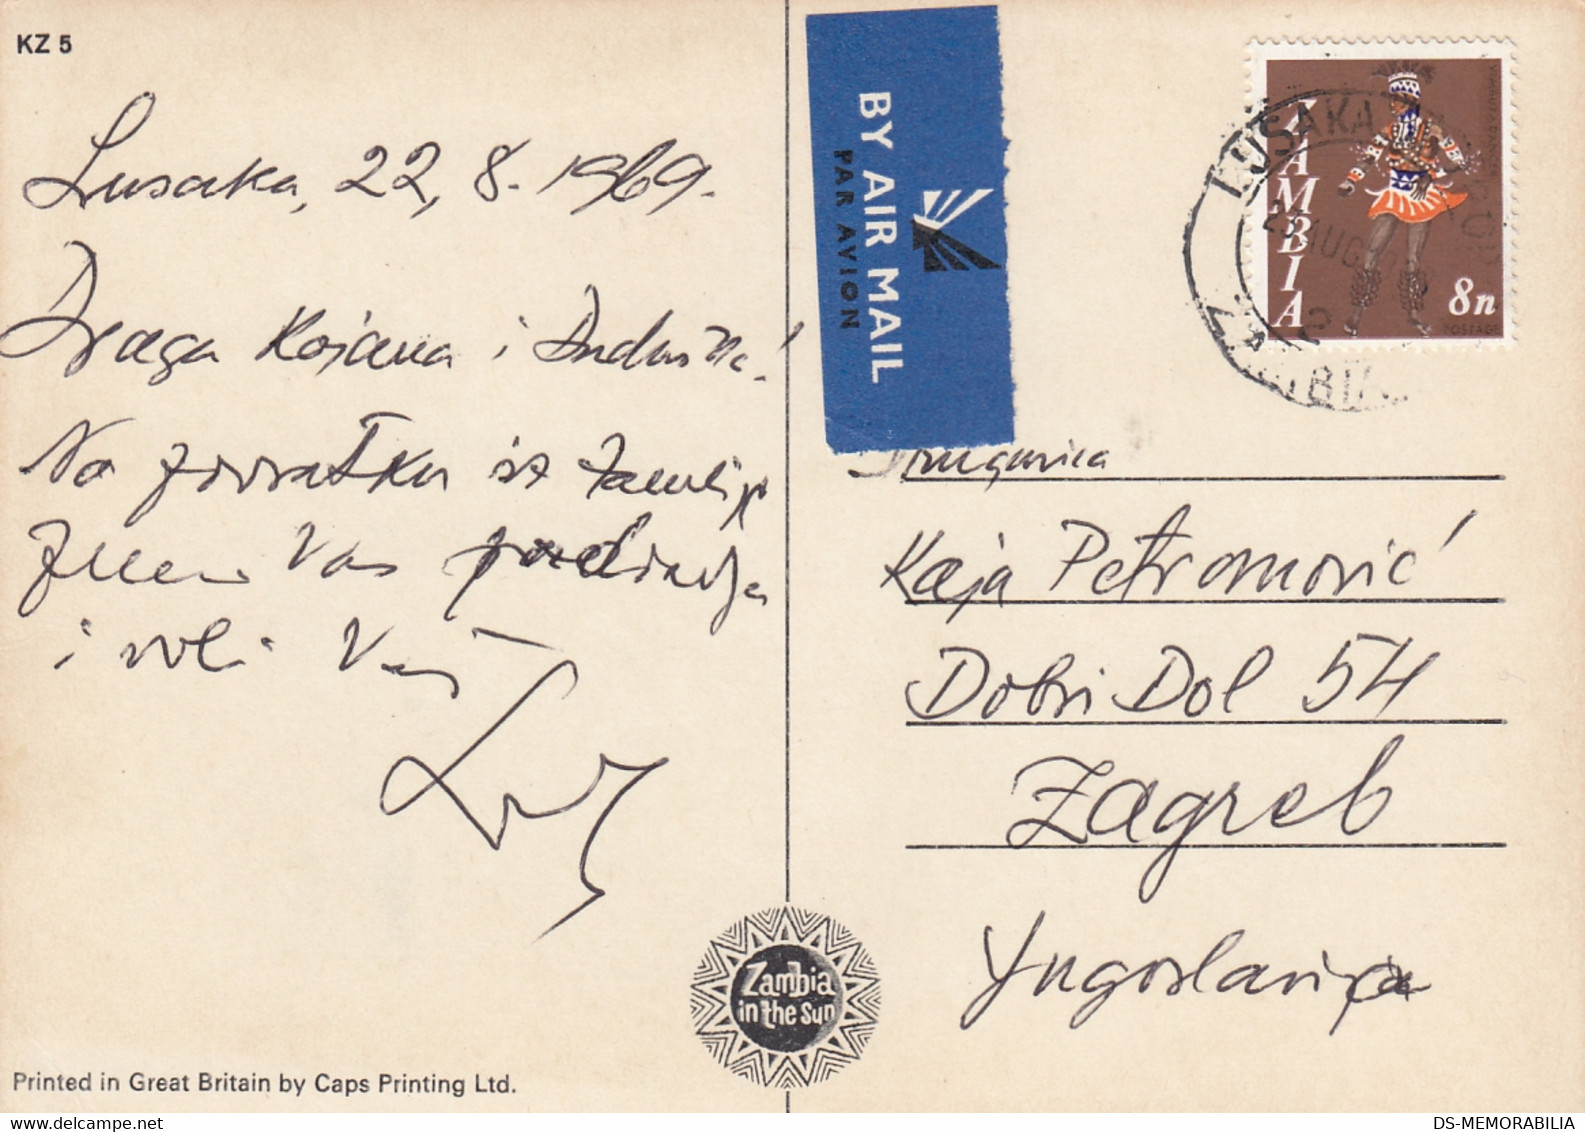 KZ 5
Lusaka, 22, 8. 1969.
Draga Kojana i
Na povratku iz Zambije
Vas
i voli Vaš
BY AIR MAIL
PAR AVION
ZAMBIA
8n
POSTAGE
LUSAKA
AUG
ZAMBIA
Drugarica
Kaja Petromović
Dobri Dol 54
Zagreb
Yugoslavija
Zambia
in the Sun
Printed in Great Britain by Caps Printing Ltd.
DS-MEMORABILIA